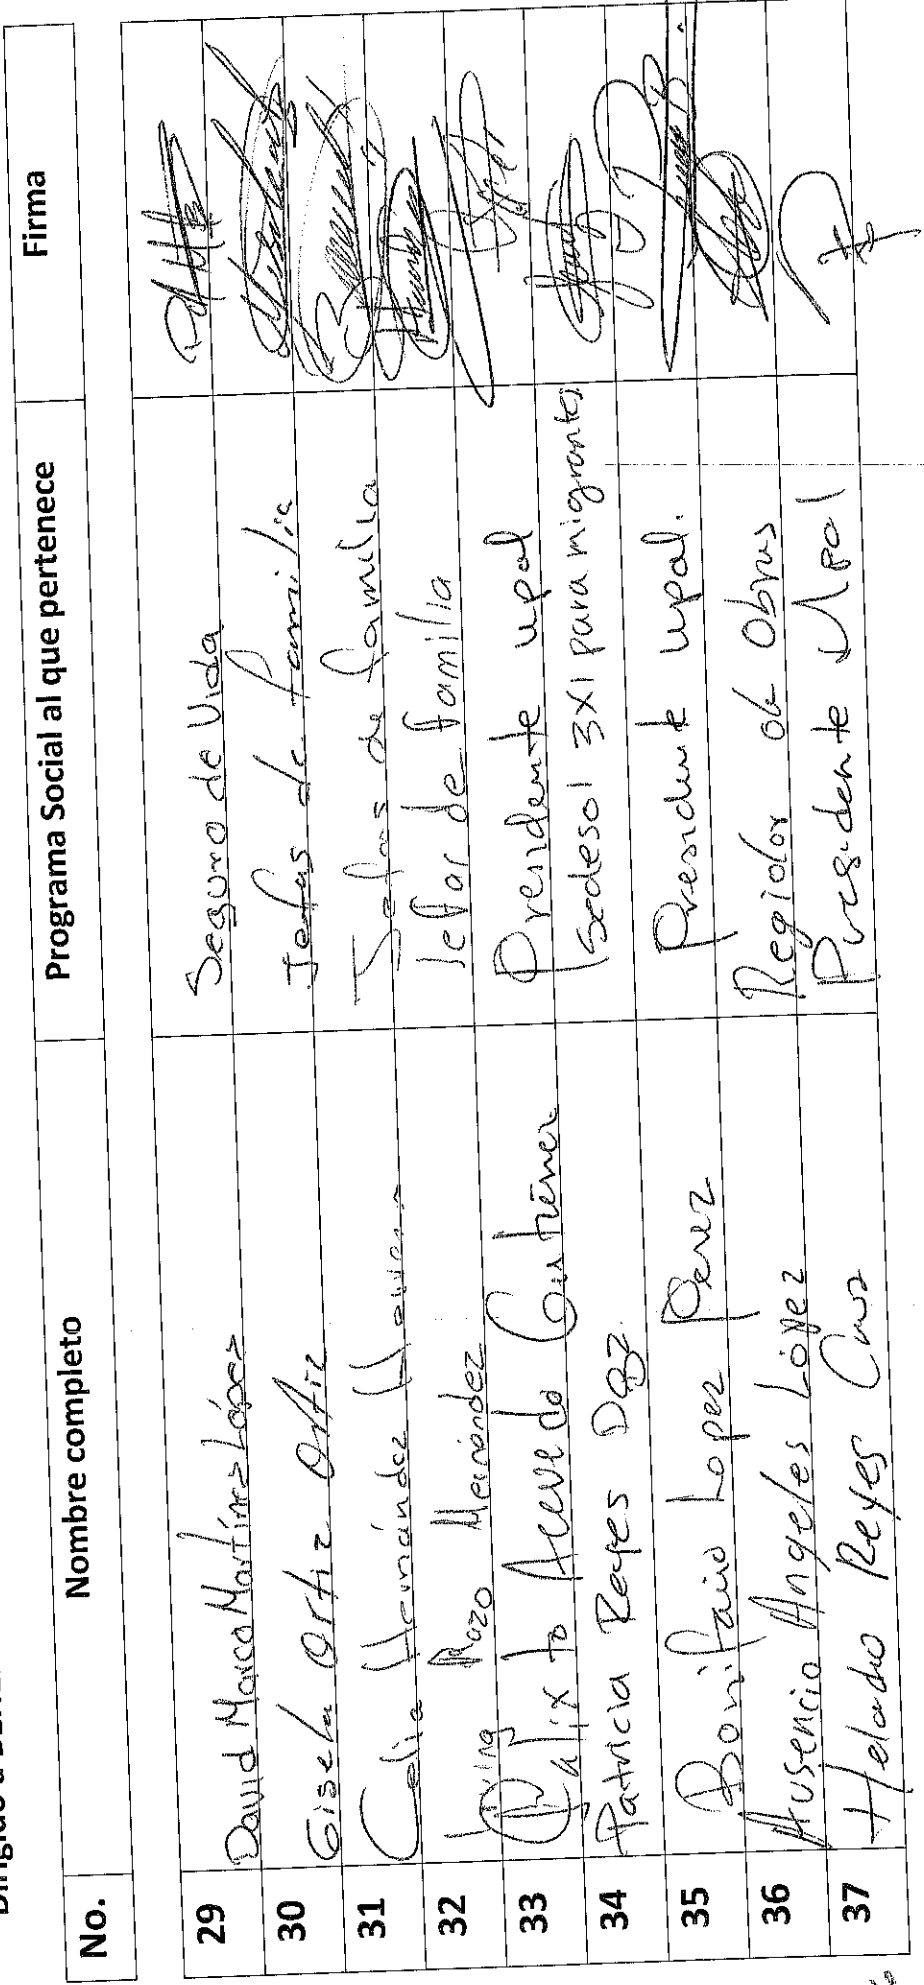 No. Nombre completo Programa Social al que pertenece Firma
29 David Marco Martínez López Seguro de Vida
30 Gisela Ortiz Ortiz Jefas de familia
31 Celia Hernández Jefas de familia
32 Rozo Hernández Jefas de familia
33 Calixto Acevedo Presidente mpal
34 Patricia Reyes Sedesol 3X1 para migrantes
35 Bonifacio Lopez Perez Presidente mpal.
36 Ausencio Angeles López Regidor de Obras
37 Heladio Reyes Cruz Presidente Mpal